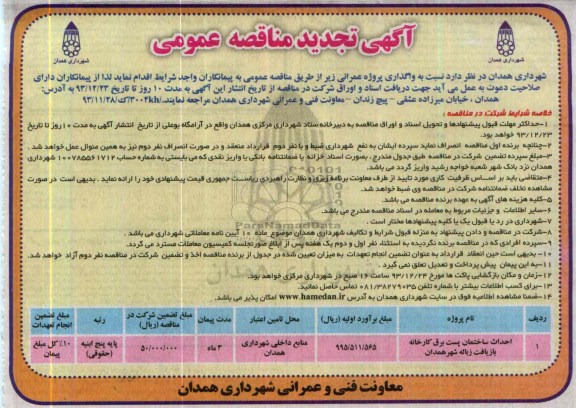 آگهی تجدید مناقصه عمومی
شهرداری همدان
شهرداری همدان
شهرداری همدان در نظر دارد نسبت به واگذاری پروژه عمرانی زیر از طریق مناقصه عمومی به پیمانکاران واجد شرایط اقدام نماید لذا از پیمانکاران دارای
صلاحیت دعوت به عمل می آید جهت دریافت اسناد و اوراق شرکت در مناقصه از تاریخ انتشار این آگهی به مدت ۱۰ روز تا تاریخ ۹۳/۱۲/۲۳ به آدرس:
همدان ، خیابان میرزاده عشقی – پیچ زندان – معاونت فنی و عمرانی شهرداری همدان مراجعه نمایند.
خلاصه شرایط شرکت در مناقصه :
۱-حداکثر مهلت قبول پیشنهادها و تحویل اسناد و اوراق مناقصه به دبیرخانه ستاد شهرداری مرکزی همدان واقع در آرامگاه بوعلی از تاریخ انتشار آگهی به مدت ۱۰ روز تا تاریخ
۹۳/۱۲/۲۳ خواهد بود.
۲-چنانچه برنده اول مناقصه انصراف نماید سپرده ایشان به نفع شهرداری ضبط و با نفر دوم قرارداد منعقد و در صورت انصراف نفر دوم نیز به همین منوال عمل خواهد شد.
۳-مبلغ سپرده تضمین شرکت در مناقصه طبق جدول مندرج، بصورت اسناد خزانه یا ضمانتنامه بانکی یا واریز نقدی که می بایستی به شماره حساب ۱۰۰۷۸۵۵۶۱۷۱۲ شهرداری
همدان نزد بانک شهر شعبه خواجه رشید واریز گردد می باشد.
۴-متقاضی باید بر اساس ظرفیت کاری مورد تایید از طرف معاونت برنامه ریزی و نظارت راهبردی ریاست جمهوری قیمت پیشنهادی خود را ارائه نماید . بدیهی است در صورت
مشاهده تخلف ضمانتنامه شرکت در مناقصه وی ضبط خواهد شد.
۵-کلیه هزینه های آگهی به عهده برنده مناقصه می باشد.
۶-سایر اطلاعات و جزئیات مربوط به معامله در اسناد مناقصه مندرج می باشد.
۷-شهرداری در رد یا قبول یک یا کلیه پیشنهادها مختار است .
۸-شرکت در مناقصه و دادن پیشنهاد به منزله قبول شرایط و تکالیف شهرداری همدان موضوع ماده ۱۰ آیین نامه معاملاتی شهرداری می باشد .
۹-سپرده افرادی که در مناقصه برنده نگردیده به استثناء نفر اول و دوم یک هفته پس از ابلاغ صورتجلسه کمیسیون معاملات مسترد می گردد.
۱۰- بدیهی است حین انعقاد قرارداد به عنوان تضمین انجام تعهدات به میزان تعیین شده در جدول از برنده مناقصه اخذ و تضمین شرکت در مناقصه نفر دوم آزاد خواهد شد.
۱۱-به این پیمان پیش پرداخت و تعدیل تعلق نمی گیرد .
۱۲-زمان و مکان بازگشایی پاکت ها مورخ ۹۳/۱۲/۲۴ ساعت ۱۶ صبح در شهرداری مرکزی خواهد بود.
۱۳-برای کسب اطلاعات بیشتر با شماره تلفن ۰۸۱/۳۸۲۷۹۰۳۵ تماس حاصل نمایید.
۱۴-ضمنا مشاهده اطلاعیه فوق در سایت شهرداری همدان به آدرس www.hamedan.ir امکان پذیر می باشد.
ردیف نام پروژه مبلغ برآورد اولیه (ریال) محل تامین اعتبار مدت پیمان رتبه مبلغ تضمین شرکت در مناقصه (ریال) مبلغ تضمین انجام تعهدات
۱ احداث ساختمان پست برق کارخانه بازیافت زباله شهر همدان ۹۹۵/۵۱۱/۵۶۵ منابع داخلی شهرداری همدان ۳ ماه پایه پنج ابنیه (حقوقی) ۵۰/۰۰۰/۰۰۰ ۱۰٪ کل مبلغ پیمان
معاونت فنی و عمرانی شهرداری همدان
ParsNamadData